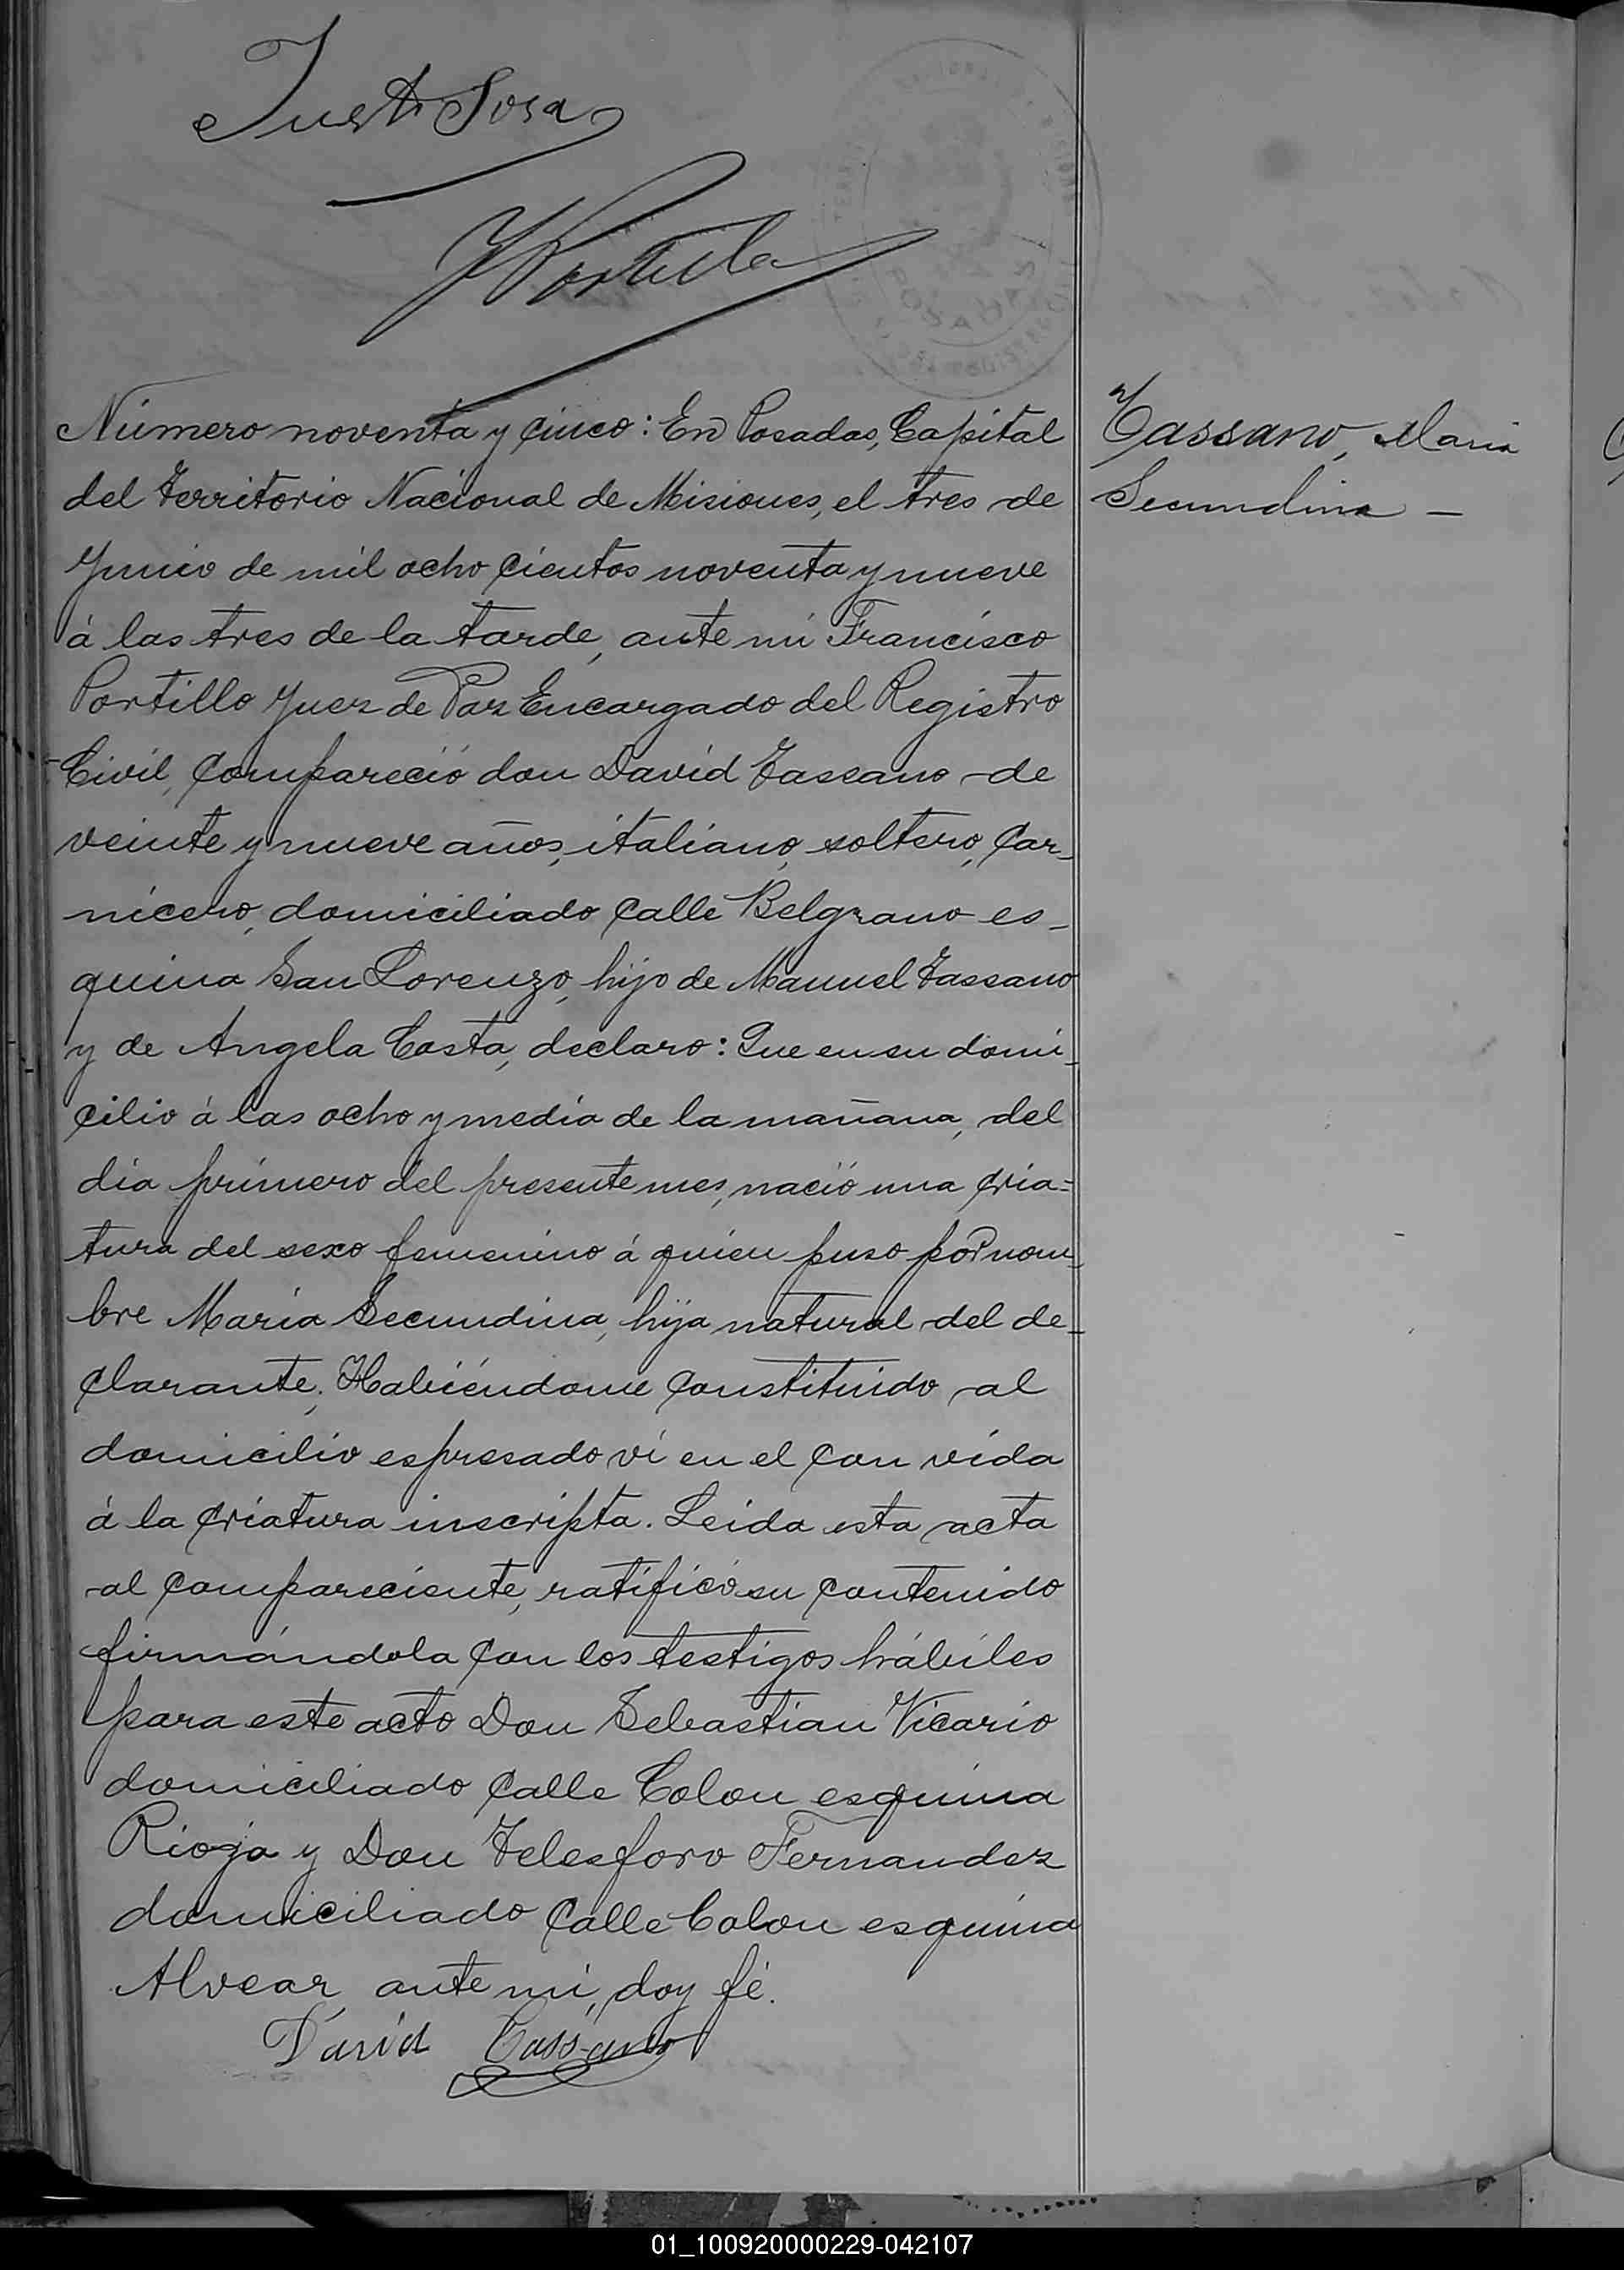 Justo Sosa
F Portillo
Número noventa y cinco: En Posadas, Capital
del Territorio Nacional de Misiones, el tres de
Junio de mil ocho cientos noventa y nueve
á las tres de la tarde, ante mi Francisco
Portillo Juez de Paz Encargado del Registro
Civil, compareció don David Tassano de
veinte y nueve años, italiano, soltero, car-
nicero, domiciliado calle Belgrano es-
quina San Lorenzo, hijo de Manuel Tassano
y de Angela Costa, declaro: Que en su domi-
cilio á las ocho y media de la mañana, del
dia primero del presente mes, nació una cria=
tura del sexo femenino á quien puso por nom-
bre Maria Secundina, hija natural del de-
clarante. Habiéndome constituido al
domicilio espresado ví en el con vida
á la criatura inscripta. Leida esta acta
al compareciente, ratificó su contenido
firmándola con los testigos hábiles
para este acto Don Sebastian Vicario
domiciliado calle Colon esquina
Rioja y Don Telesforo Fernandez
domiciliado calle Colon esquina
Alvear, ante mi, doy fé.
David Tassano
Tassano, Maria
Secundina -
01_100920000229-042107